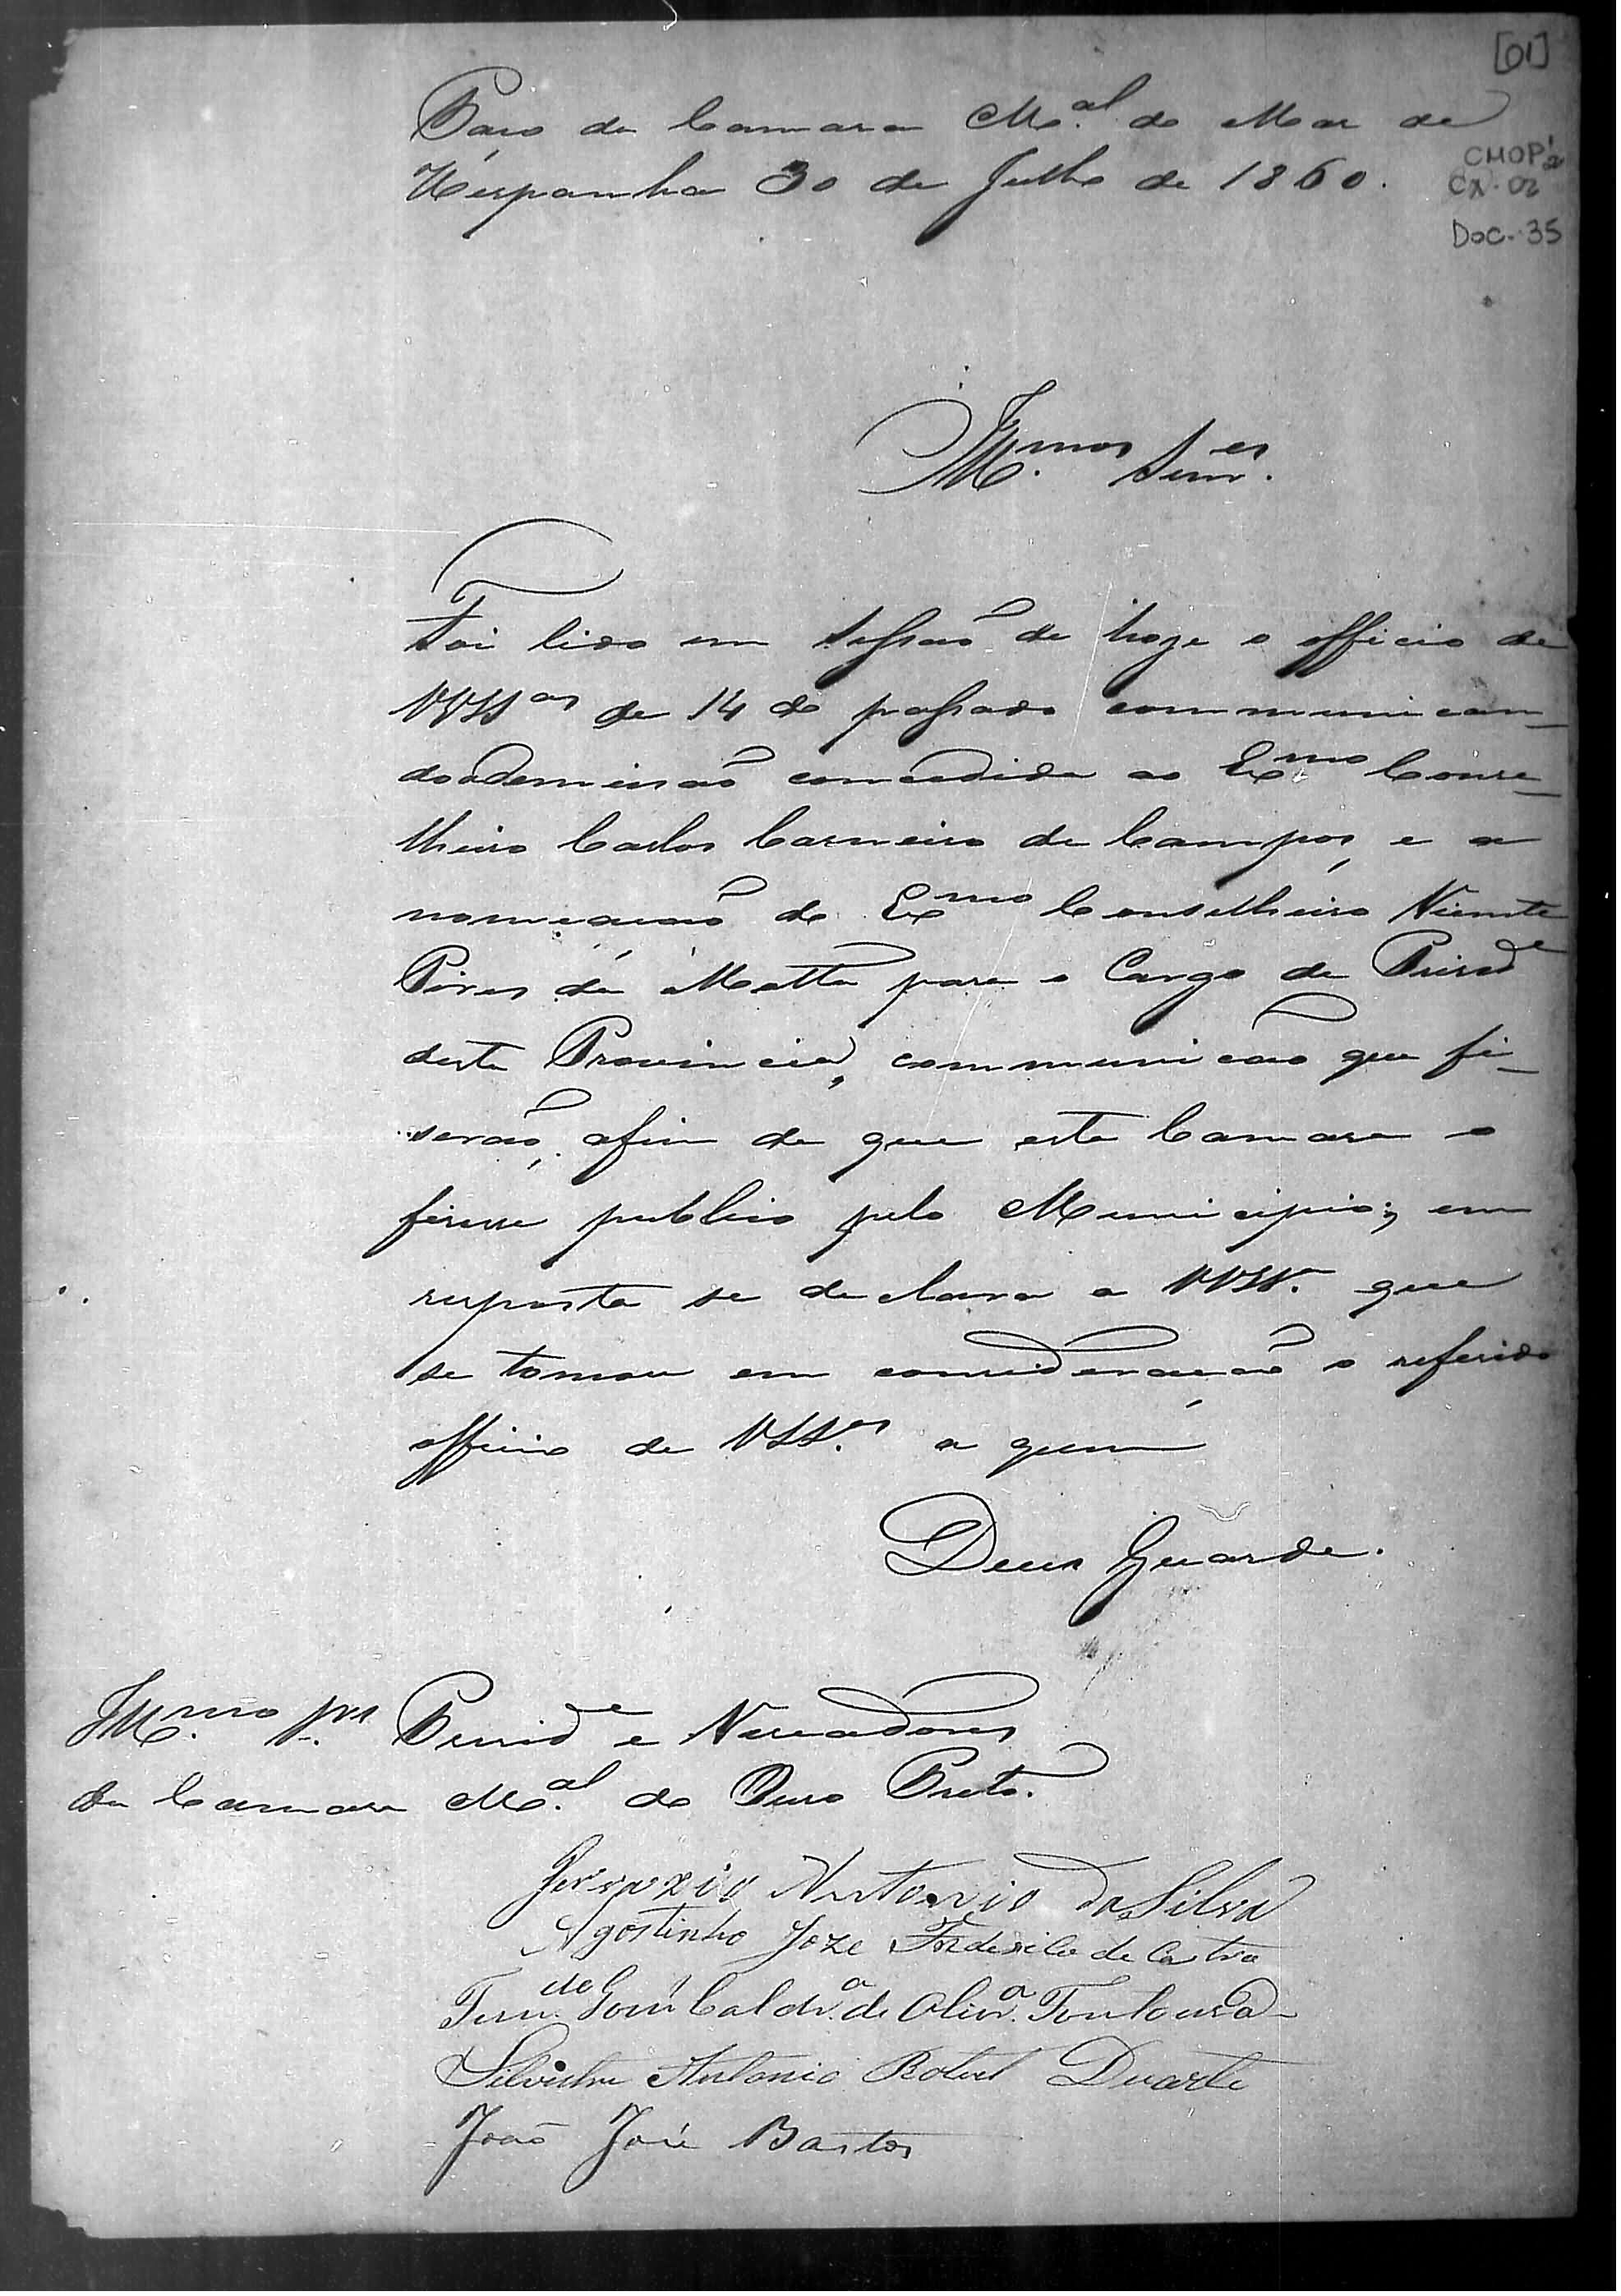 [01]
Paço da Camara M.al do Mar de
Hespanha 30 de Julho de 1860.
CMOP
CX. 02
Doc. 35
Ill.mos Senr.es
Foi lido em sessaõ de hoje o officio de
VVSSas de 14 do passado communican-
do a demissaõ concedida ao Ex.mo Conse-
lheiro Carlos Carneiro de Campos, e a
nomeaçaõ do Ex.mo Conselheiro Vicente
Pires da Motta para o Cargo de Presid.e
desta Provincia, communicaõ que fi-
seraõ, afim de que esta Camara o
fisesse publico pelo Municipio; em
resposta se declara a VVSS. que
se tomou em consideraçaõ o referido
officio de VSS.as a quem
Deus Guarde.
Ill.mo Presid.e e Vereadores
da Camara M.al do Ouro Preto.
Gervazio Antonio da Silva
Agostinho Joze Frederico de Castro
Fern.do Gomˢ Cald.ra de Oliv.ra Fontoura
Silvestre Antonio Duarte
João José Bastos